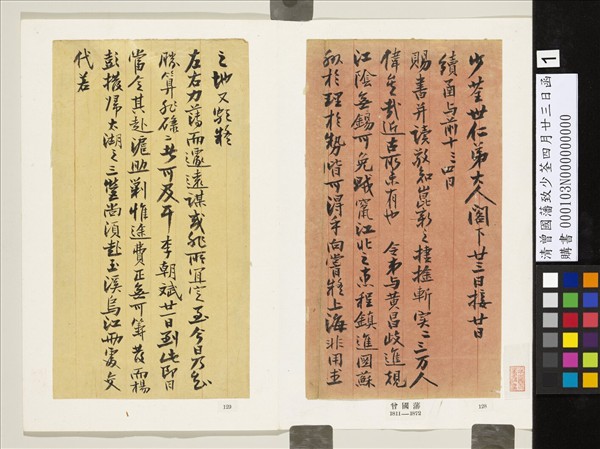 少荃世仁弟大人閣下廿三日接廿日
續函与前十三四日
賜書并讀敬知崑新之捷擒斬实二三万人
偉矣哉近古所未有也 令弟与黃昌歧進規
江陰無錫可免賊竄江北之患程鎮進圖蘇
州於理於勢皆可得手向嘗疑上海非用武
之地又疑
左右力薄而遽遠謀或非所宜至今日乃知
勝算非碌碌所可及耳李朝斌廿一日到此即日
當令其赴滬助剿惟途費正無可籌發而楊
彭撥歸太湖之三營尚須赴玉溪烏江兩處交
代若
曾國藩
1811—1872
128
129
1
清曾國藩致少荃四月廿三日函
購書 000103N000000000